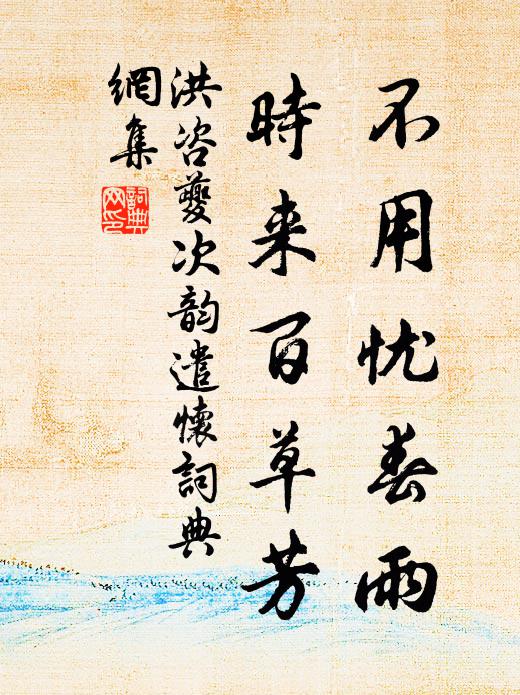 不用忧春雨
時来百草芳
洪咨夔次韵遣懷詞典
網集
詞典
网印